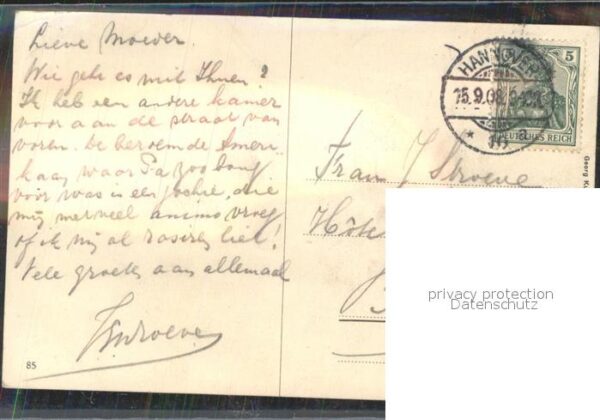 Lieve Moeder.
Wie geht es mit Ihnen?
Ik heb een andere kamer
voor aan de straat van
voren. De beroemde Ameri-
kaan waar Pa zoo bang
voor was is een , die
mij met veel animo vroeg
of ik mij al liet!
Vele groeten aan allemaal
JStroeve
85
HANNOVER
15.9.08.
* 1 *
5
DEUTSCHES REICH
Frau J Stroeve
Hôtel
Georg K
privacy protection
Datenschutz